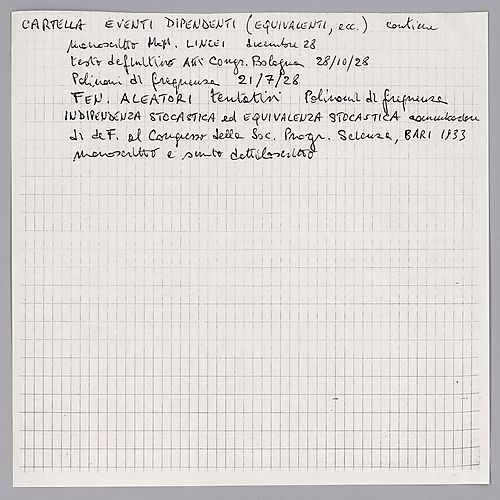 CARTELLA EVENTI DIPENDENTI (EQUIVALENTI, ecc.) contiene
manoscritto LINCEI dicembre 28
testo definitivo Atti Congr. Bologna 28/10/28
Polinomi di frequenza 21/7/28
FEN. ALEATORI tentativi Polinomi di frequenza
INDIPENDENZA STOCASTICA ed EQUIVALENZA STOCASTICA comunicazione
di deF. al Congresso della Soc. Progr. Scienza, BARI 1933
manoscritto e sunto dattiloscritto